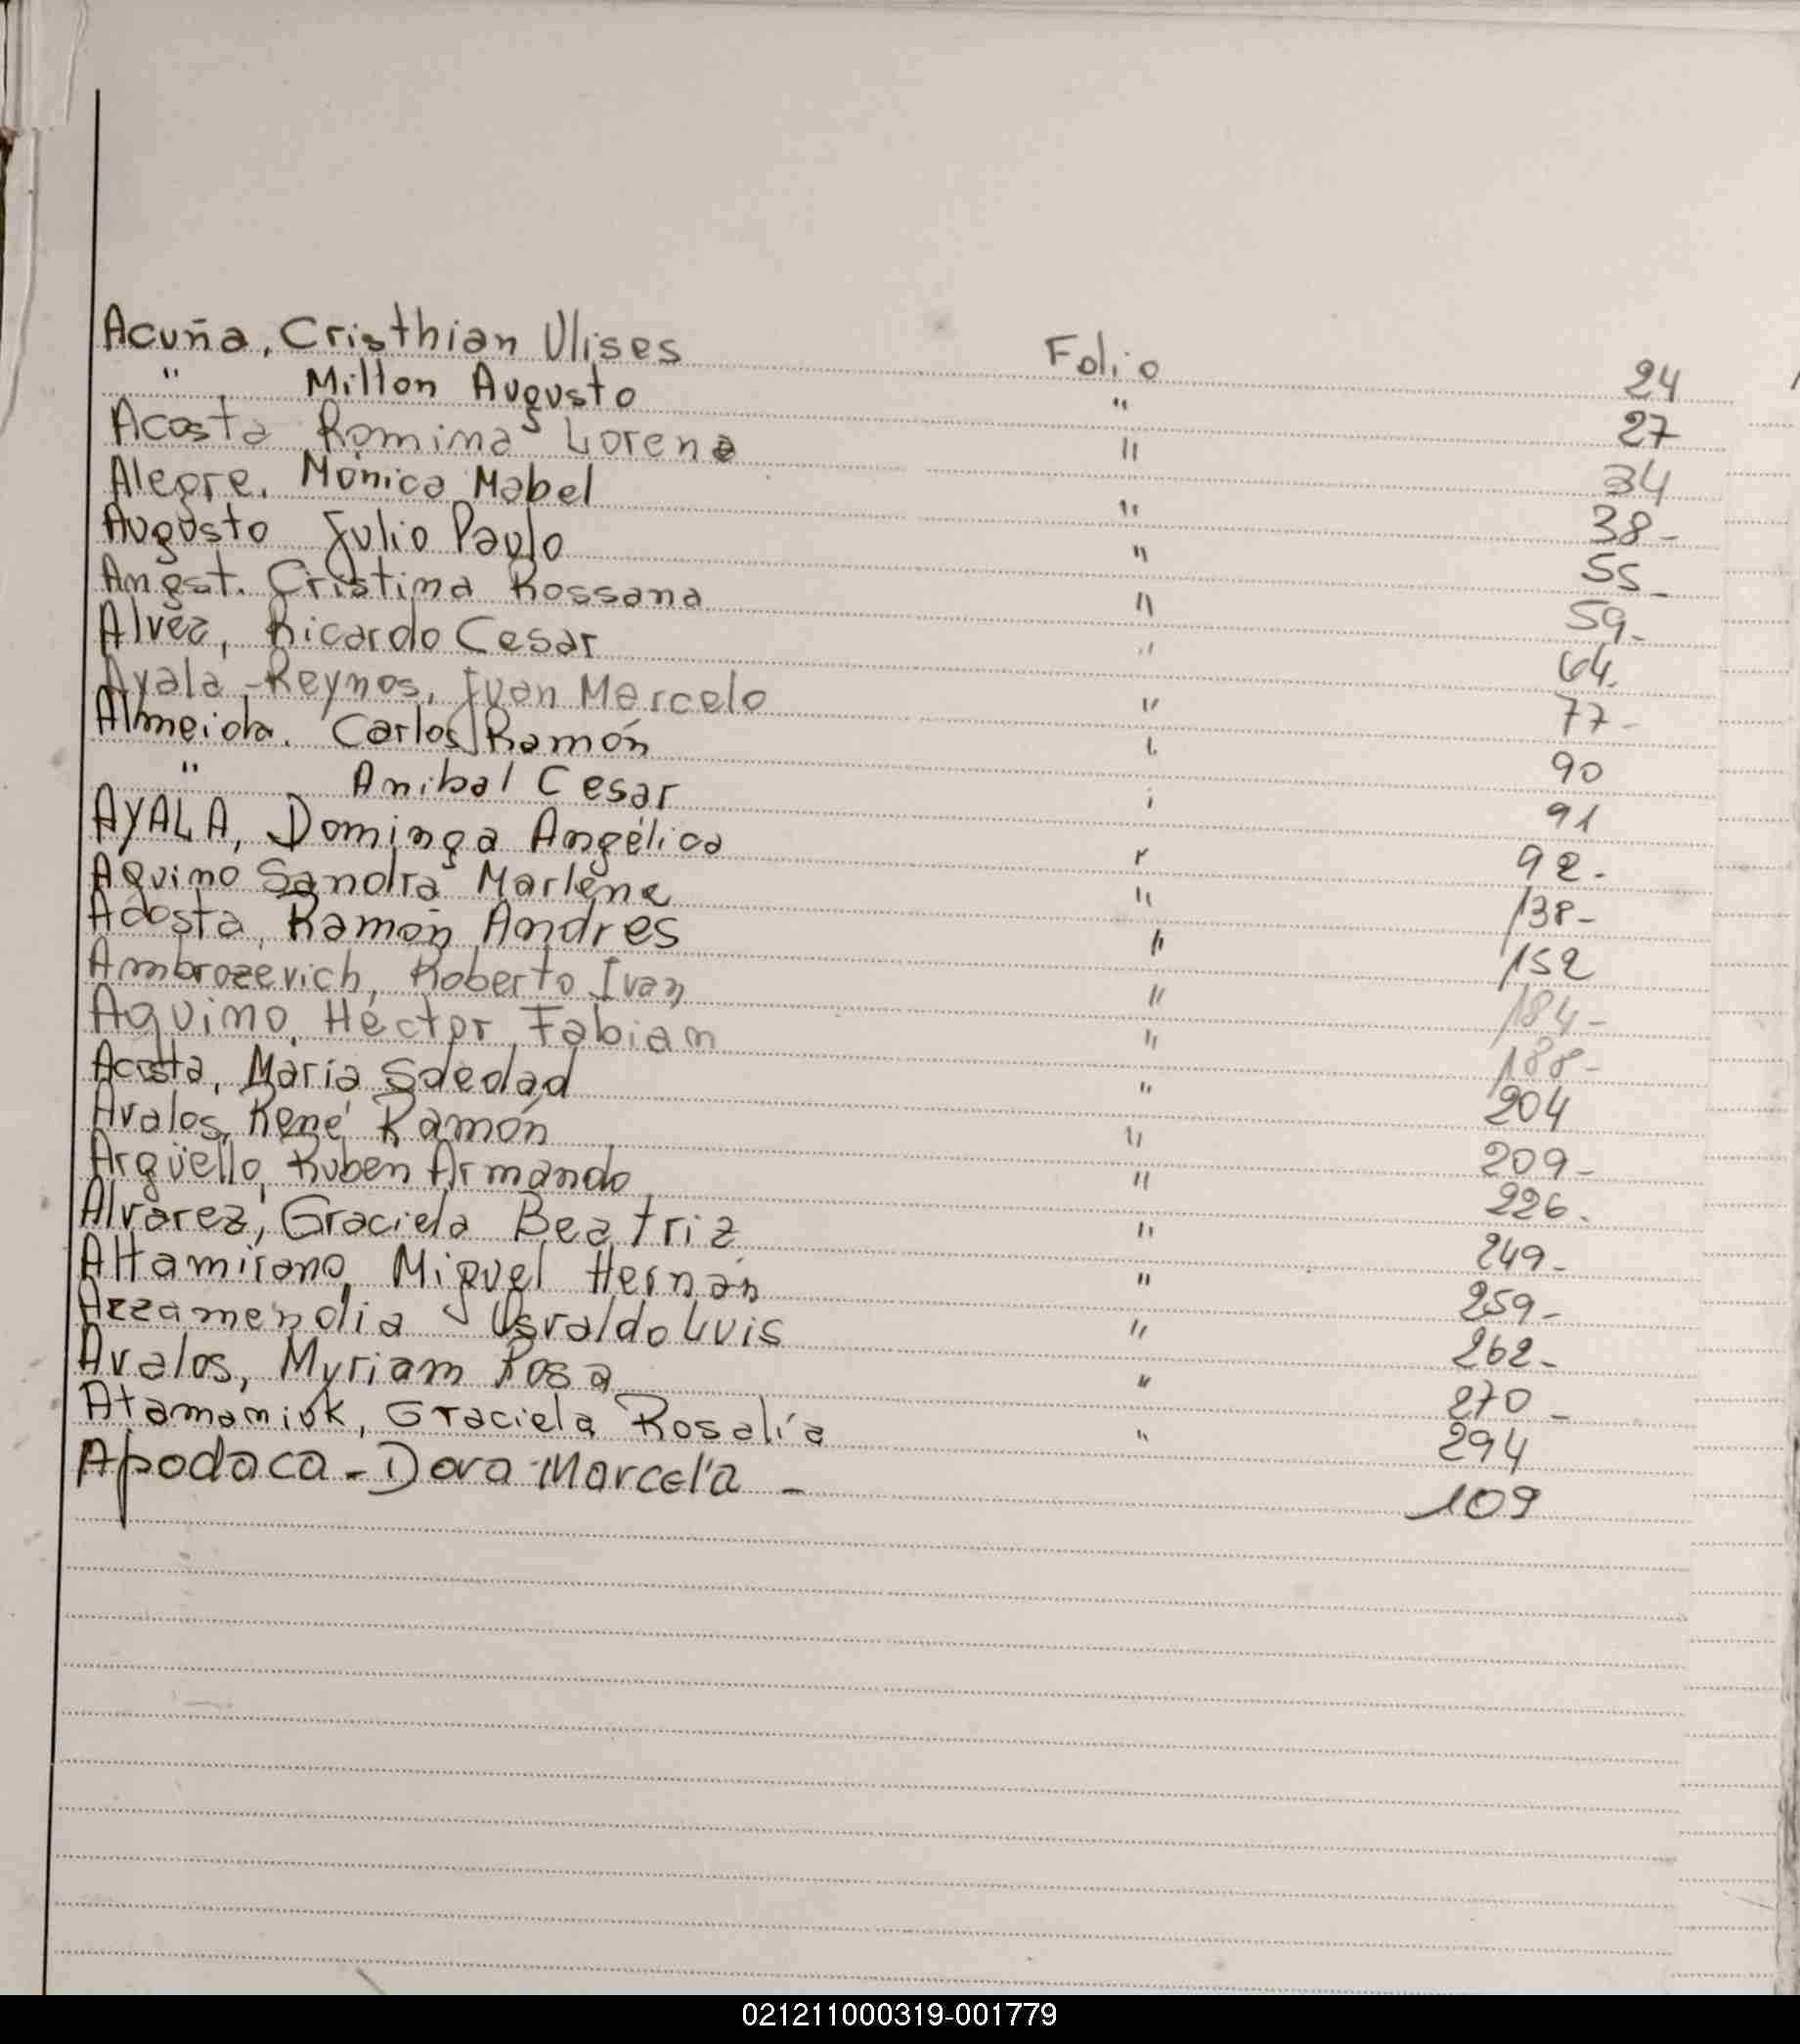 Acuña, Cristhian Ulises Folio 24
" Milton Augusto " 27
Acosta Romina Lorena " 34
Alegre, Mónica Mabel " 38-
Augusto Julio Paulo " 55-
Angst. Cristina Rossana " 59-
Alvez, Ricardo Cesar " 64.
Ayala-Reynos, Juan Marcelo " 77-
Almeida. Carlos Ramón " 90
" Anibal Cesar " 91
AYALA, Dominga Angélica " 92.
Aquino Sandra Marlene " 138-
Acosta, Ramón Andres " 152
Ambrozevich, Roberto Ivan " 184-
Aquino, Héctor Fabian " 188-
Acosta, María Soledad " 204
Avalos, René Ramón " 209-
Argüello, Ruben Armando " 226.
Alvarez, Graciela Beatriz " 249-
Altamirano Miguel Hernán " 259-
Arzamendia Osvaldo Luis " 262-
Avalos, Myriam Rosa " 270-
Atamaniuk, Graciela Rosalía " 294
Apodaca-Dora Marcela - 109
021211000319-001779